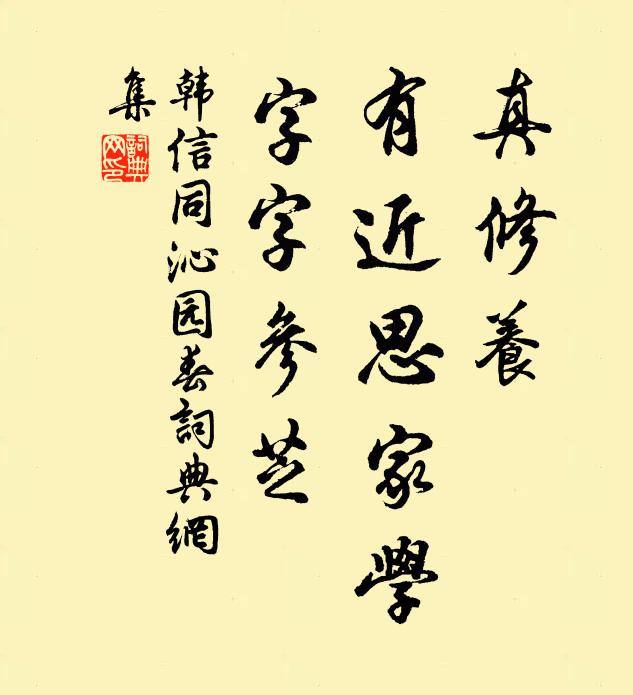 真修養
有近思家學
字字參芝
韩信同沁园春詞典網
集
詞典
网印